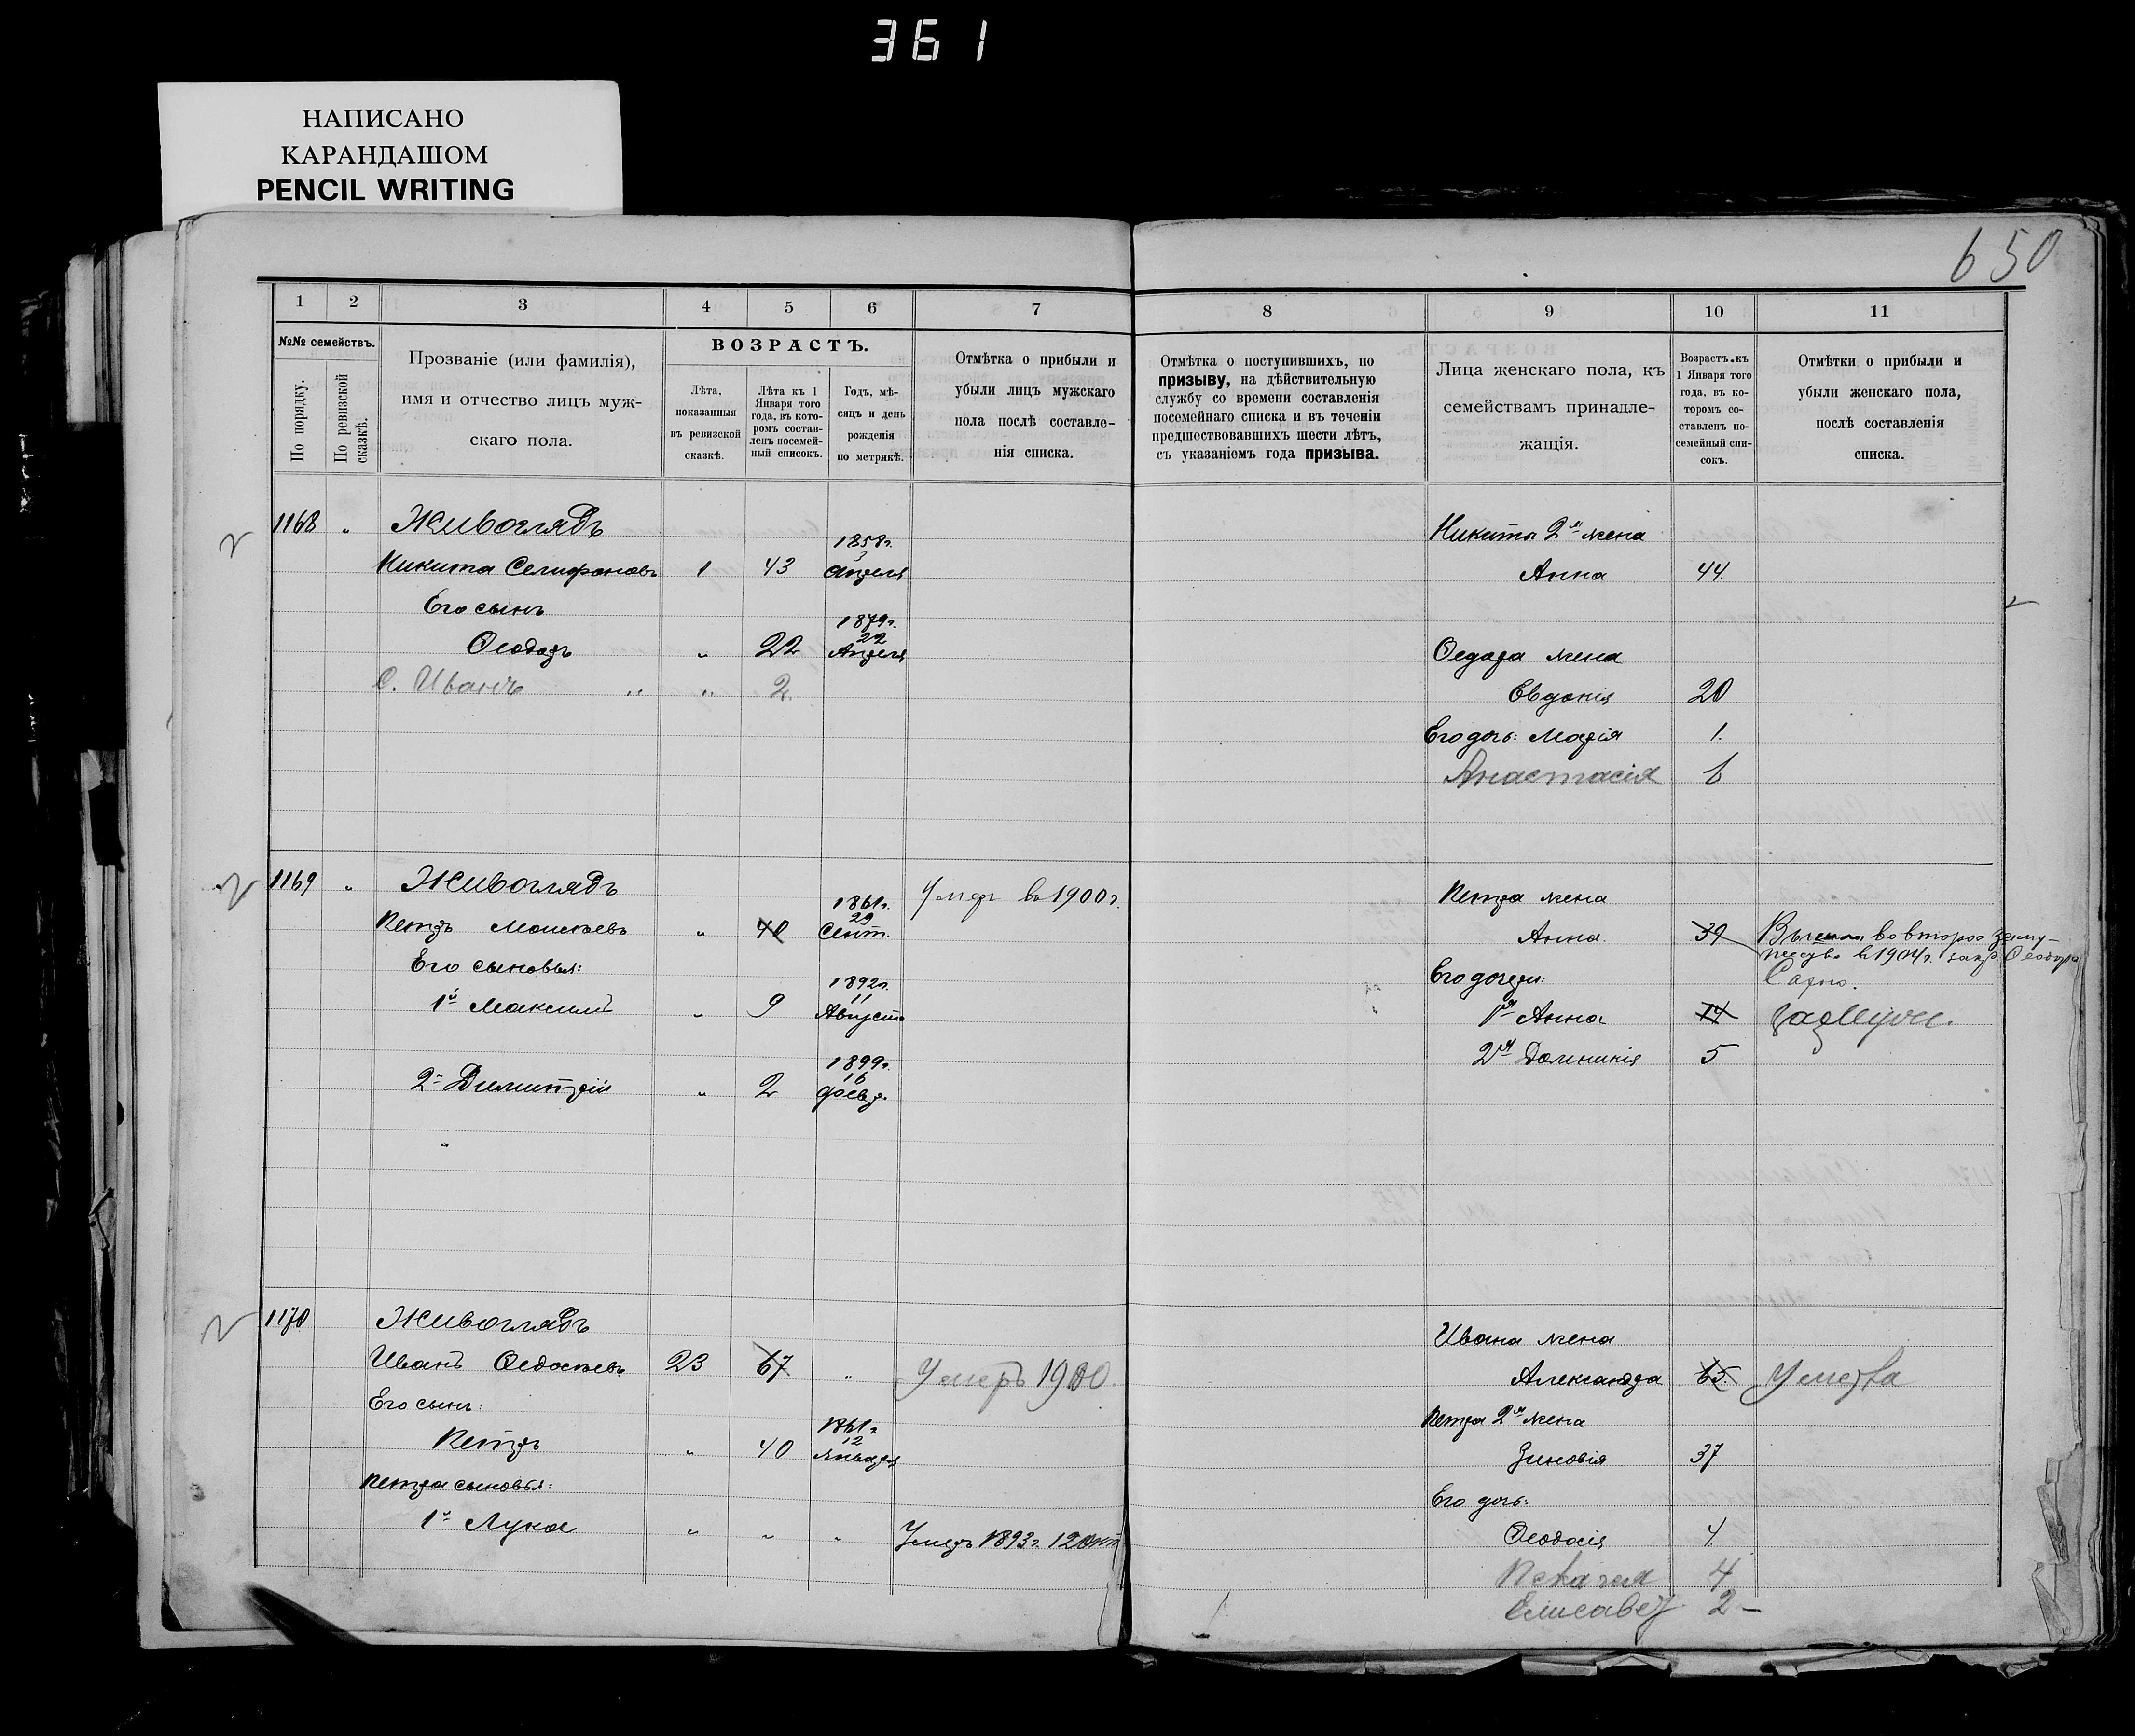 361
НАПИСАНО
КАРАНДАШОМ
PENCIL WRITING
650
1 2 3 4 5 6 7 8 9 10 11
№№ семействъ.
По порядку.
По ревизской сказкѣ.
Прозваніе (или фамилія),
имя и отчество лицъ муж-
скаго пола.
ВОЗРАСТЪ.
Лѣта,
показанныя
въ ревизской
сказкѣ.
Лѣта къ 1
Января того
года, въ кото-
ромъ состав-
ленъ посемей-
ный списокъ.
Годъ, мѣ-
сяцъ и день
рожденія
по метрикѣ.
Отмѣтка о прибыли и
убыли лицъ мужскаго
пола послѣ составле-
нія списка.
Отмѣтка о поступившихъ, по
призыву, на дѣйствительную
службу со времени составленія
посемейнаго списка и въ теченіи
предшествовавшихъ шести лѣтъ,
съ указаніемъ года призыва.
Лица женскаго пола, къ
семействамъ принадле-
жащія.
Возрастъ къ
1 Января того
года, въ ко-
торомъ со-
ставленъ по-
семейный спи-
сокъ.
Отмѣтки о прибыли и
убыли женскаго пола,
послѣ составленія
списка.
1168 " Живоглядъ 1858г. Никиты 2я жена
Никита Селифоновъ 1 43 3 апреля Анна 44.
Его сынъ
Ѳеодоръ " 22 1879г. 22 Апреля Ѳедора жена
С. Иванъ " " 2 Евдокія 20
Его дочь: Марія 1.
Анастасія 6
1169 " Живоглядъ 1861г. Умеръ въ 1900г. Петра жена
Петръ Моисеевъ " 40 29 Сент. Анна 39 Вышла во второе заму-
жество въ 1904г. за кр. Ѳеодора
Его сыновья: Его дочери: Сахно.
1й Максимъ " 9 1892г. 11 Августа 1я Анна 14 замужем.
2я Домникія 5
2й Димитрій " 2 1899г. 16 февр.
"
1170 Живоглядъ Ивана жена
Иванъ Ѳедосеевъ 23 67 " Умеръ 1900. Александра 65. Умерла
Его сынъ: Петра 2я жена
Петръ " 40 1861г. 12 Января Зиновія 37
Петра сыновья: Его дочь:
1й Лука " " " Умеръ 1893г. 12 окт Ѳеодосія 4.
Пелагея 4
Елисавет 2 –